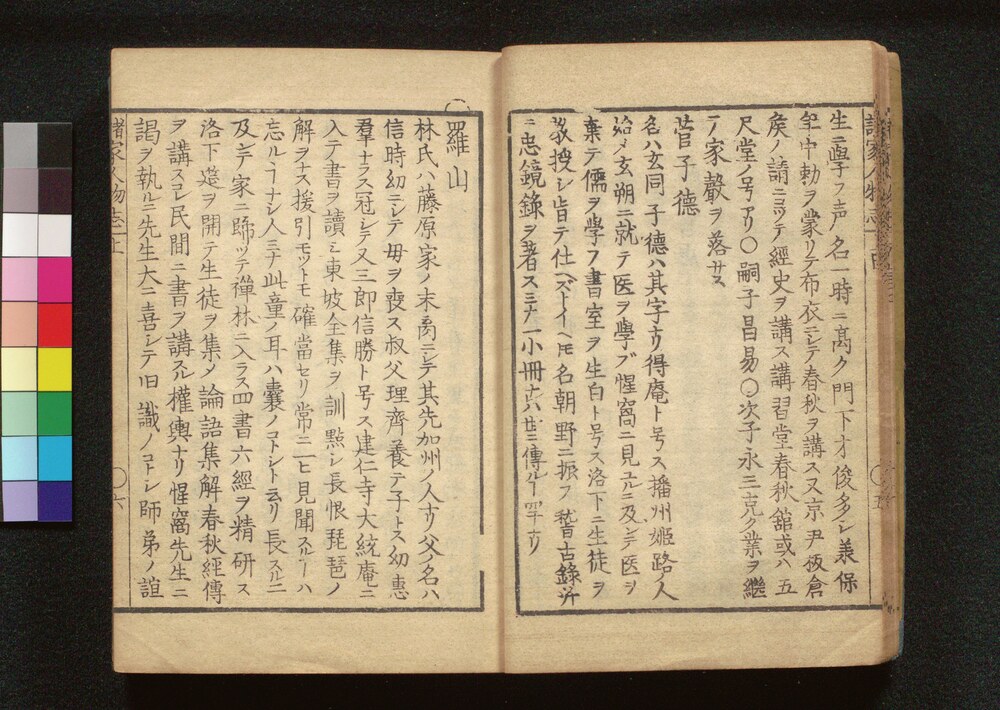 生ニ學フ声名一時ニ髙ク門下才俊多シ兼保
年中勅ヲ蒙リテ布衣ニシテ春秋ヲ講ス又京尹板倉
矦ノ請ニヨツテ經史ヲ講ス講習堂春秋舘或ハ五
尺堂ノ号アリ〇嗣子昌易〇次子永三克ク業ヲ継
テ家聲ヲ落サス
菅子德
名ハ玄同子德ハ其字ナリ得庵ト号ス播州姫路ノ人
始メ玄朔ニ就テ医ヲ學ブ惺窩ニ見ユルニ及ンデ医ヲ
棄テ儒ヲ學フ書室ヲ生白ト号ス洛下ニ生徒ヲ
敎授シ皆テ仕ヘズトイヘ𪜈名朝野ニ振フ稽古錄并
ニ忠鏡錄ヲ著ス三ナ一小冊ナレ𪜈世ニ傳ルヿ罕ナリ
羅山
林氏ハ藤原家ノ末裔ニシテ其先加州ノ人ナリ父名ハ
信時幼ニシテ母ヲ喪ス叔父理齊養テ子トス幼恵
羣ナラス冠シテ又三郎信勝ト号ス建仁寺大統庵ニ
入テ書ヲ讀ミ東坡全集ヲ訓點シ長恨琵琶ノ
解ヲナス援引モツトモ確當セリ常ニ一ヒ見聞スルヿハ
忘ルヿナシ人ミナ此童ノ耳ハ囊ノコトシト云リ長スルニ
及ンデ家ニ歸ツテ禪林ニ入ラス四書六經ヲ精研ス
洛下ニ筵ヲ開テ生徒ヲ集メ論語集解春秋經傳
ヲ講スコレ民間ニ書ヲ講スル權輿ナリ惺窩先生ニ
謁ヲ執ルニ先生大ニ喜シテ旧識ノコトシ師弟ノ誼
諸家人物志上
〇六